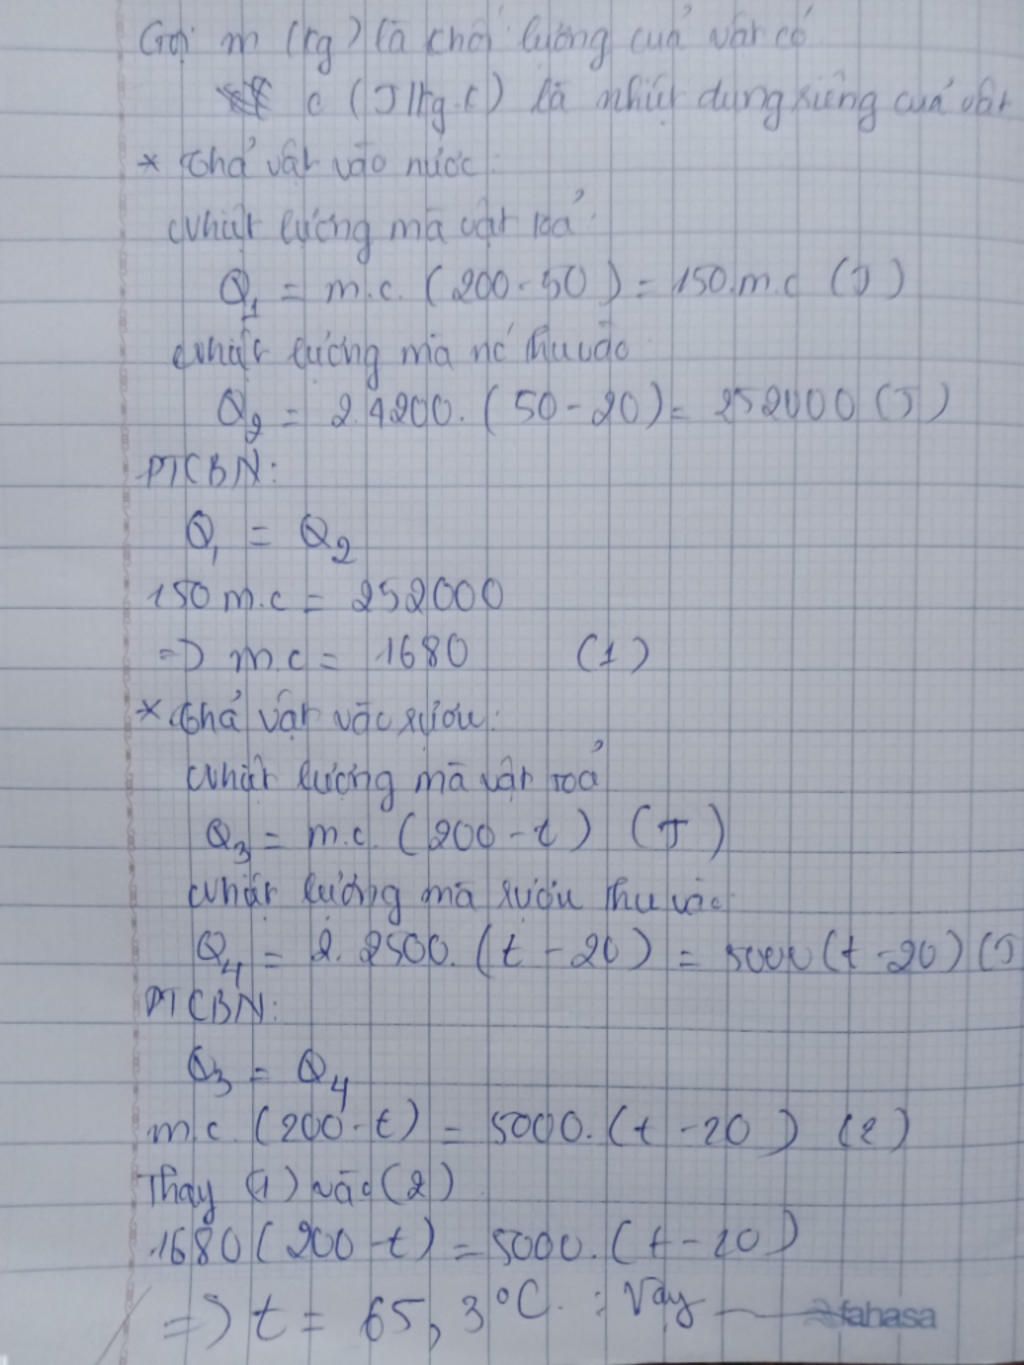 Gọi m (kg) là khối lượng của vật có
c (J/kg.C) là nhiệt dung riêng của vật
* Thả vật vào nước:
Nhiệt lượng mà vật toả:
Q₁ = m.c. (200-50) = 150.m.c (J)
Nhiệt lượng mà nc thu vào
Q₂ = 2.4200. (50-20) = 252000 (J)
PTCBN:
Q₁ = Q₂
150 m.c = 252000
=> m.c = 1680 (1)
* Thả vật vào rượu:
Nhiệt lượng mà vật toả
Q₃ = m.c. (200-t) (J)
Nhiệt lượng mà rượu thu vào
Q₄ = 2. 2500. (t - 20) = 5000 (t -20) (J
PTCBN:
Q₃ = Q₄
m.c. (200-t) = 5000. (t -20) (2)
Thay (1) vào (2)
1680 (200-t) = 5000. (t-20)
=> t = 65,3°C. : Vậy
fahasa